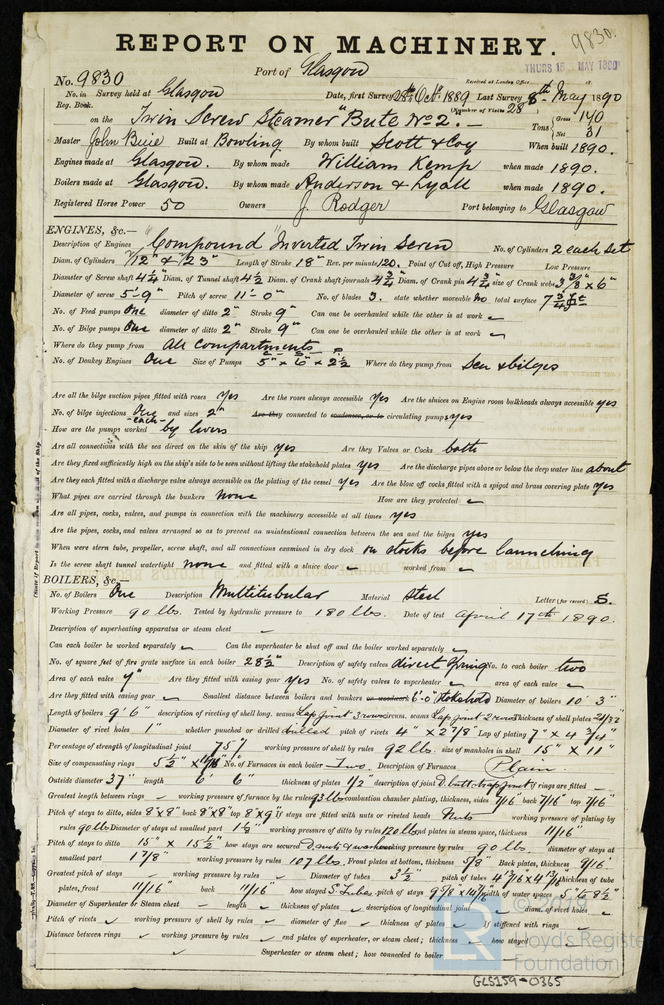 9830.
REPORT ON MACHINERY.
No. 9830 Port of Glasgow
Received at London Office THURS 15 MAY 1890
No. in Reg. Book. Survey held at Glasgow Date, first Survey 28th Oct. 1889 Last Survey 8th May 1890
(Number of Visits 28)
on the Twin Screw Steamer "Bute No 2." Tons Gross 140 Net 31
Master John Buie Built at Bowling By whom built Scott & Coy When built 1890.
Engines made at Glasgow. By whom made William Kemp when made 1890.
Boilers made at Glasgow. By whom made Anderson & Lyall when made 1890.
Registered Horse Power 50 Owners J. Rodger Port belonging to Glasgow
ENGINES, &c.—
Description of Engines Compound Inverted Twin Screw No. of Cylinders 2 each set
Diam. of Cylinders 12" & 23" Length of Stroke 18" Rev. per minute 120. Point of Cut off, High Pressure Low Pressure
Diameter of Screw shaft 4 3/4 Diam. of Tunnel shaft 4 1/2 Diam. of Crank shaft journals 4 3/4 Diam. of Crank pin 4 3/4 size of Crank webs 3 3/8" x 6"
Diameter of screw 5'-9" Pitch of screw 11'-0" No. of blades 3. state whether moveable no total surface 7 3/4 ft
No. of Feed pumps One diameter of ditto 2" Stroke 9" Can one be overhauled while the other is at work
No. of Bilge pumps One diameter of ditto 2" Stroke 9" Can one be overhauled while the other is at work
Where do they pump from All compartments
No. of Donkey Engines One Size of Pumps 5" x 6" x 2 1/2 Where do they pump from Sea & bilges
Are all the bilge suction pipes fitted with roses yes Are the roses always accessible yes Are the sluices on Engine room bulkheads always accessible yes
No. of bilge injections One each and sizes 2" Are they connected to condenser, or to circulating pump yes
How are the pumps worked by levers
Are all connections with the sea direct on the skin of the ship yes Are they Valves or Cocks both
Are they fixed sufficiently high on the ship's side to be seen without lifting the stokehold plates yes Are the discharge pipes above or below the deep water line about
Are they each fitted with a discharge valve always accessible on the plating of the vessel yes Are the blow off cocks fitted with a spigot and brass covering plate yes
What pipes are carried through the bunkers none How are they protected
Are all pipes, cocks, valves, and pumps in connection with the machinery accessible at all times yes
Are the pipes, cocks, and valves arranged so as to prevent an unintentional connection between the sea and the bilges yes
When were stern tube, propeller, screw shaft, and all connections examined in dry dock on stocks before launching
Is the screw shaft tunnel watertight none and fitted with a sluice door worked from
BOILERS, &c.—
No. of Boilers One Description Multitubular Material Steel Letter (for record) S.
Working Pressure 90 lbs. Tested by hydraulic pressure to 180 lbs. Date of test April 17th 1890.
Description of superheating apparatus or steam chest
Can each boiler be worked separately Can the superheater be shut off and the boiler worked separately
No. of square feet of fire grate surface in each boiler 28 1/2 Description of safety valves direct spring No. to each boiler two
Area of each valve 7" Are they fitted with easing gear yes No. of safety valves to superheater area of each valve
Are they fitted with easing gear Smallest distance between boilers and bunkers or woodwork 6'-0" stokehold Diameter of boilers 10' 3"
Length of boilers 9' 6" description of riveting of shell long. seams Lap joint 3 rows circum. seams Lap joint 2 rows Thickness of shell plates 21/32"
Diameter of rivet holes 1" whether punched or drilled drilled pitch of rivets 4" x 2 7/8" Lap of plating 7" x 4 3/4"
Percentage of strength of longitudinal joint 75% working pressure of shell by rules 92 lb. size of manholes in shell 15" x 11"
Size of compensating rings 5 1/2" x 11/16 No. of Furnaces in each boiler Two Description of Furnaces Plain.
Outside diameter 37" length 6' 6" thickness of plates 1/2" description of joint D. butt strap joint if rings are fitted
Greatest length between rings working pressure of furnace by the rules 93 lb combustion chamber plating, thickness, sides 7/16" back 7/16" top 7/16"
Pitch of stays to ditto, sides 8"x8" back 8"x8" top 8"x9" If stays are fitted with nuts or riveted heads Nuts working pressure of plating by
rules 90 lb Diameter of stays at smallest part 1 1/2" working pressure of ditto by rules 120 lb end plates in steam space, thickness 11/16"
Pitch of stays to ditto 15" x 15 1/2" how stays are secured D. nuts & washers working pressure by rules 90 lb. diameter of stays at
smallest part 1 7/8" working pressure by rules 107 lb. Front plates at bottom, thickness 5/8" Back plates, thickness 9/16"
Greatest pitch of stays working pressure by rules Diameter of tubes 3 1/2" pitch of tubes 4 7/16 x 4 13/16" thickness of tube
plates, front 11/16" back 11/16" how stayed S. Tubes pitch of stays width of water spaces
Diameter of Superheater or Steam chest length thickness of plates description of longitudinal joint diam. of rivet holes
Pitch of rivets working pressure of shell by rules diameter of flue thickness of plates If stiffened with rings
Distance between rings working pressure by rules end plates of superheater, or steam chest; thickness how stayed
Superheater or steam chest; how connected to boiler
LR
© 2019
Lloyd's Register
Foundation
GLS159-0365